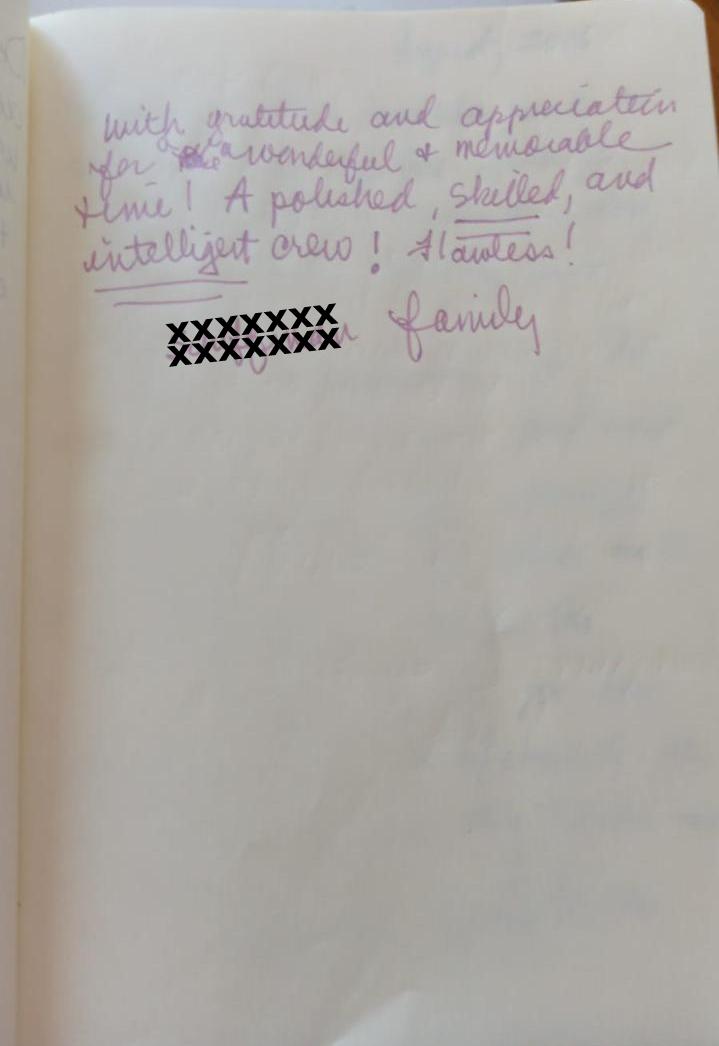 with gratitude and appreciation
for a wonderful & memorable
time! A polished, skilled, and
intelligent crew! Flawless!
XXXXXXX
XXXXXXX family